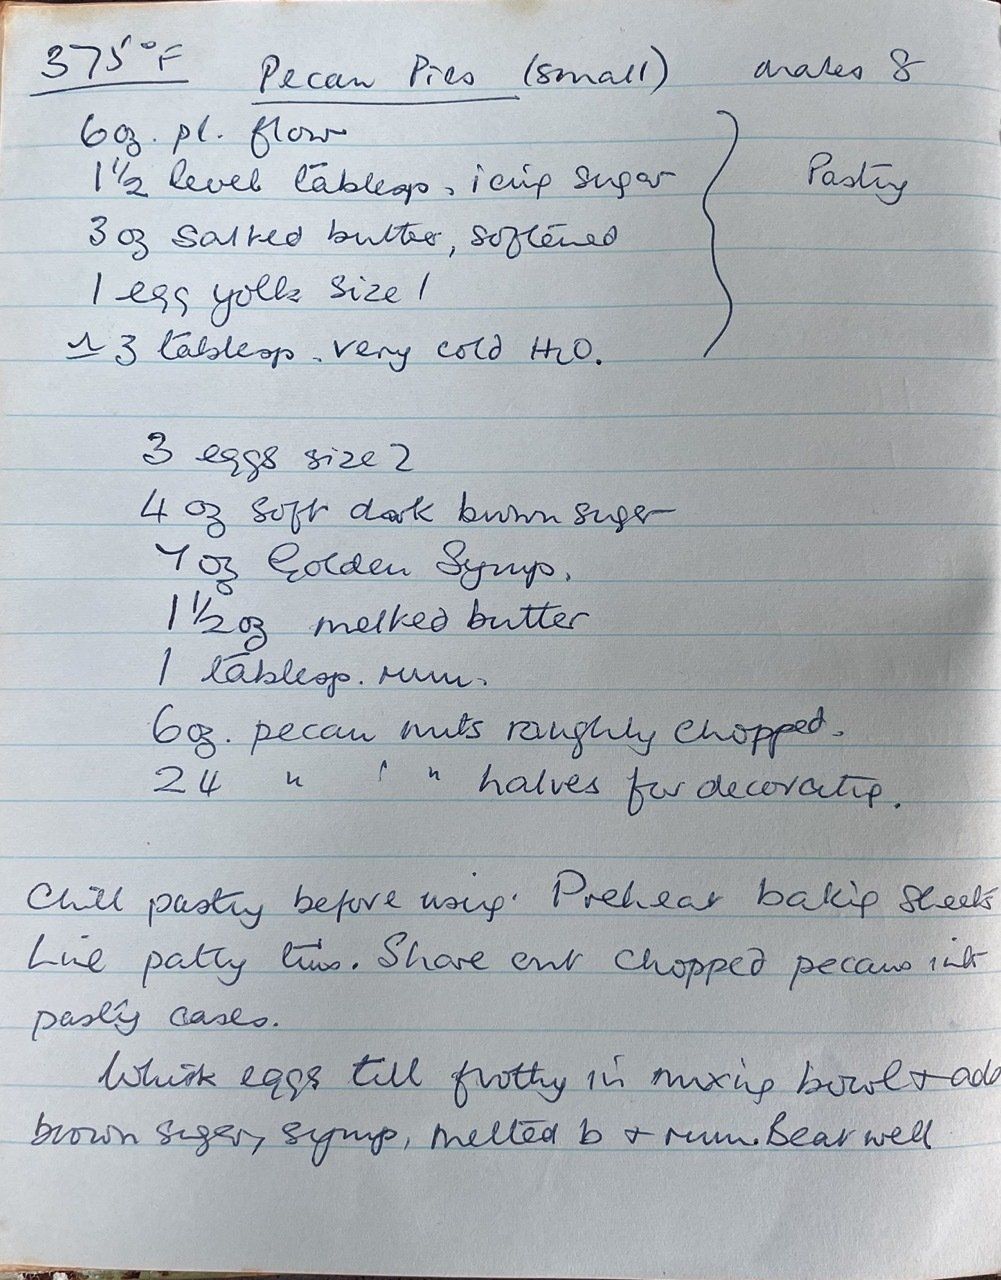 375°F Pecan Pies (small) makes 8
6oz. pl. flour
1½ level tablesp. icing sugar
3 oz salted butter, softened
1 egg yolk size 1
≃ 3 tablesp. very cold H2O.
Pastry
3 eggs size 2
4 oz soft dark brown sugar
7 oz Golden Syrup.
1½ oz melted butter
1 tablesp. rum.
6oz. pecan nuts roughly chopped.
24 " " halves for decorating.
Chill pastry before using. Preheat baking sheets
Line patty tins. Share out chopped pecans into
pastry cases.
Whisk eggs till frothy in mixing bowl + add
brown sugar, syrup, melted b + rum. Beat well